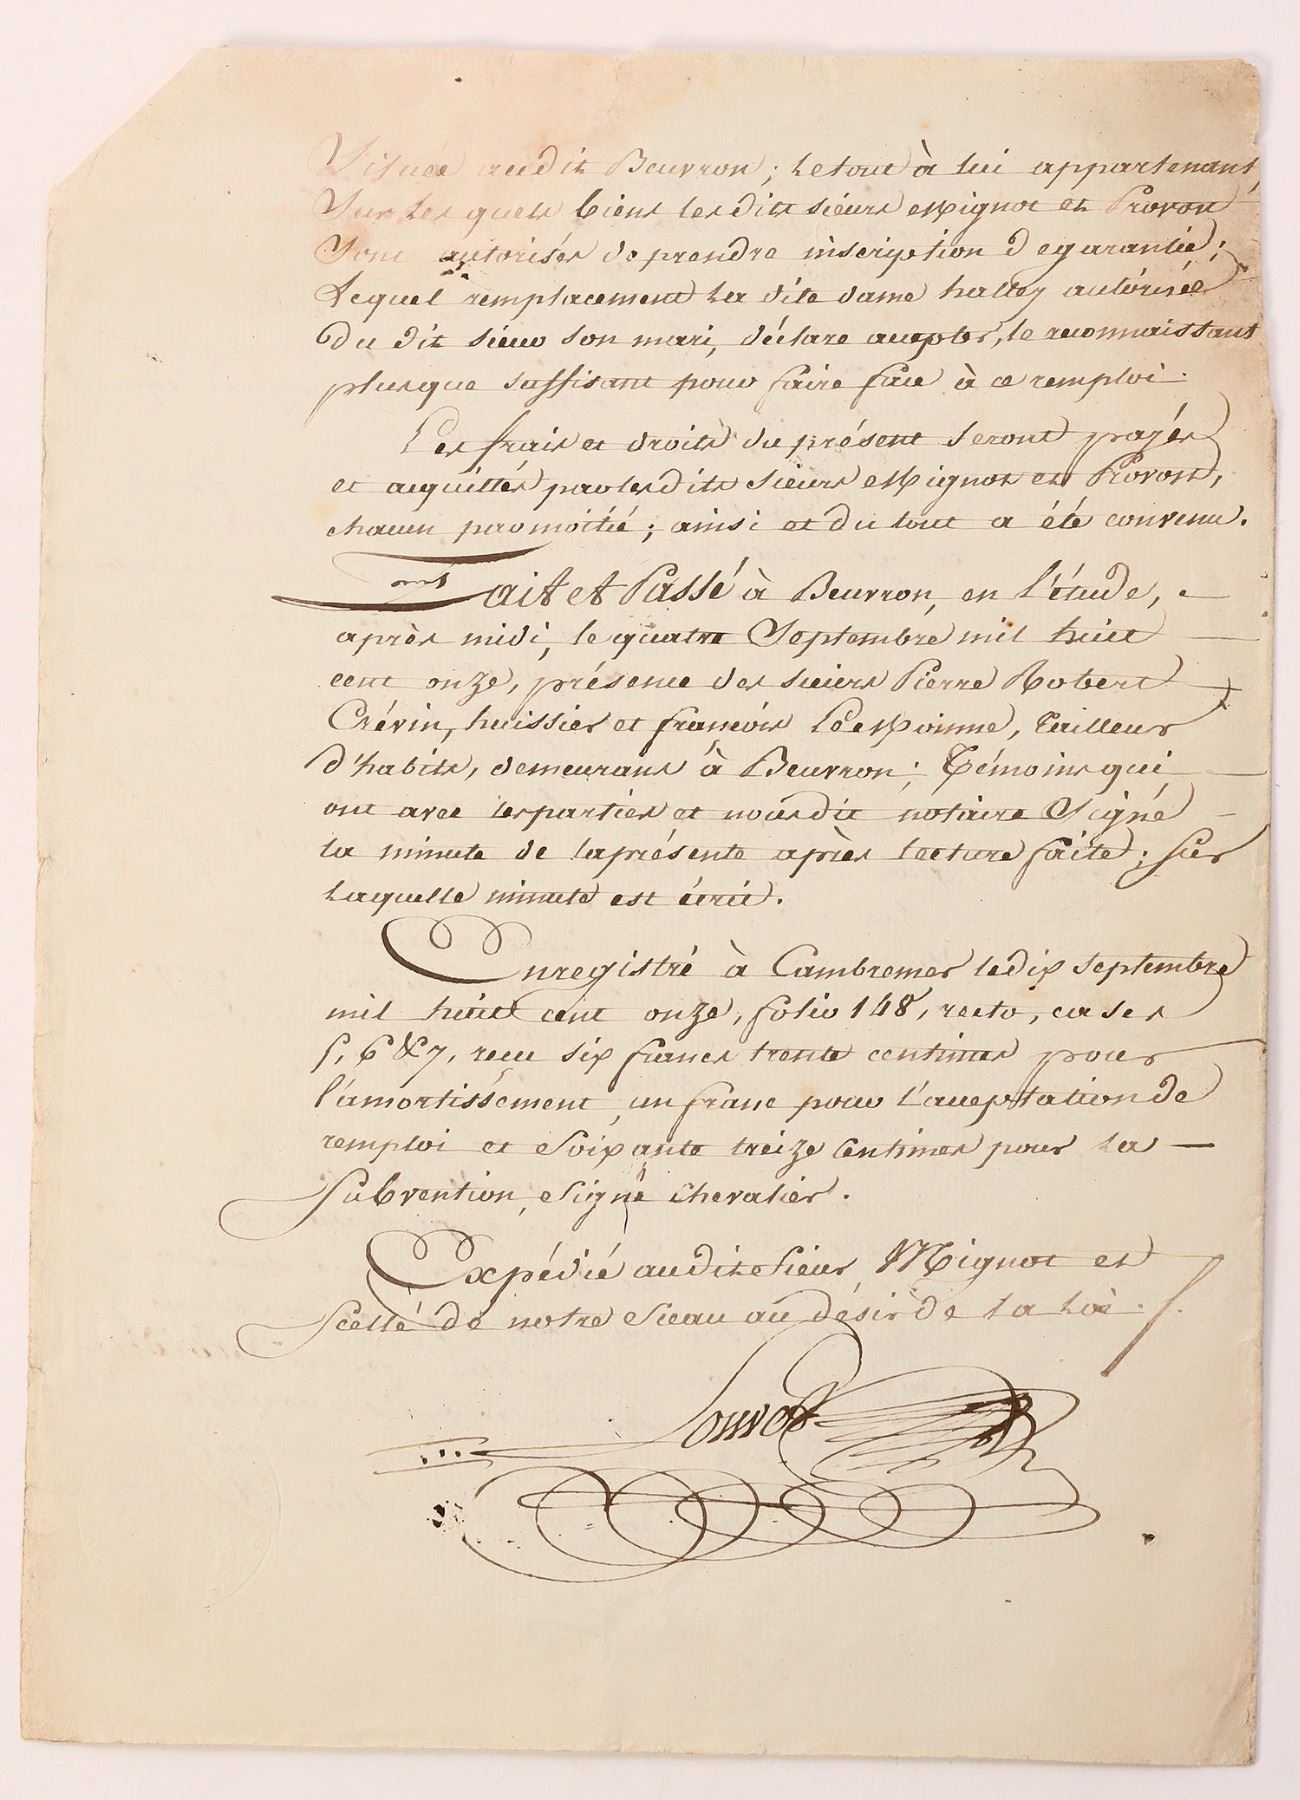 Située audit Beuvron; le tout à lui appartenant,
Sur les quels biens les dits sieurs Mignot et Provost
Sont autorisés de prendre inscription de garantie;
Lequel remplacement la dite dame halley autorisée
Du dit sieur son mari, déclare accepter, le reconnaissant
plusque suffisant pour faire face à ce remploi.
Les frais et droits du présent Seront payés
et acquittés par les dits Sieurs Mignot et Provost,
chacun par moitié; ainsi et du tout a été convenu.
Fait et Passé à Beuvron, en l'étude,
après midi, le quatre Septembre mil huit
cent onze, présence des sieurs Pierre Robert
Crévin, huissier et francois LeMoinne, Tailleur
d'habits, demeurans à Beuvron; Témoins qui
ont avec les parties et nous dit notaire Signé
la minute de la présente après lecture faite; sur
laquelle minute est écrit.
Enregistré à Cambremer le dix septembre
mil huit cent onze, folio 148, recto, cases
5, 6 & 7, reçu six francs trente centimes pour
l'amortissement, un franc pour l'acceptation de
remploi et Soixante treize Centimes pour la
Subvention, Signé Chevalier.
Expédié audit Sieur Mignot et
Scellé de notre Sceau au désir de la Loi./.